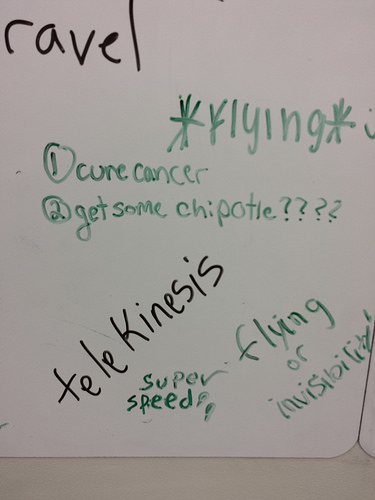 ravel
*flying*
① cure cancer
② get some chipotle????
teleKinesis
super
speed
flying
or
invisibility